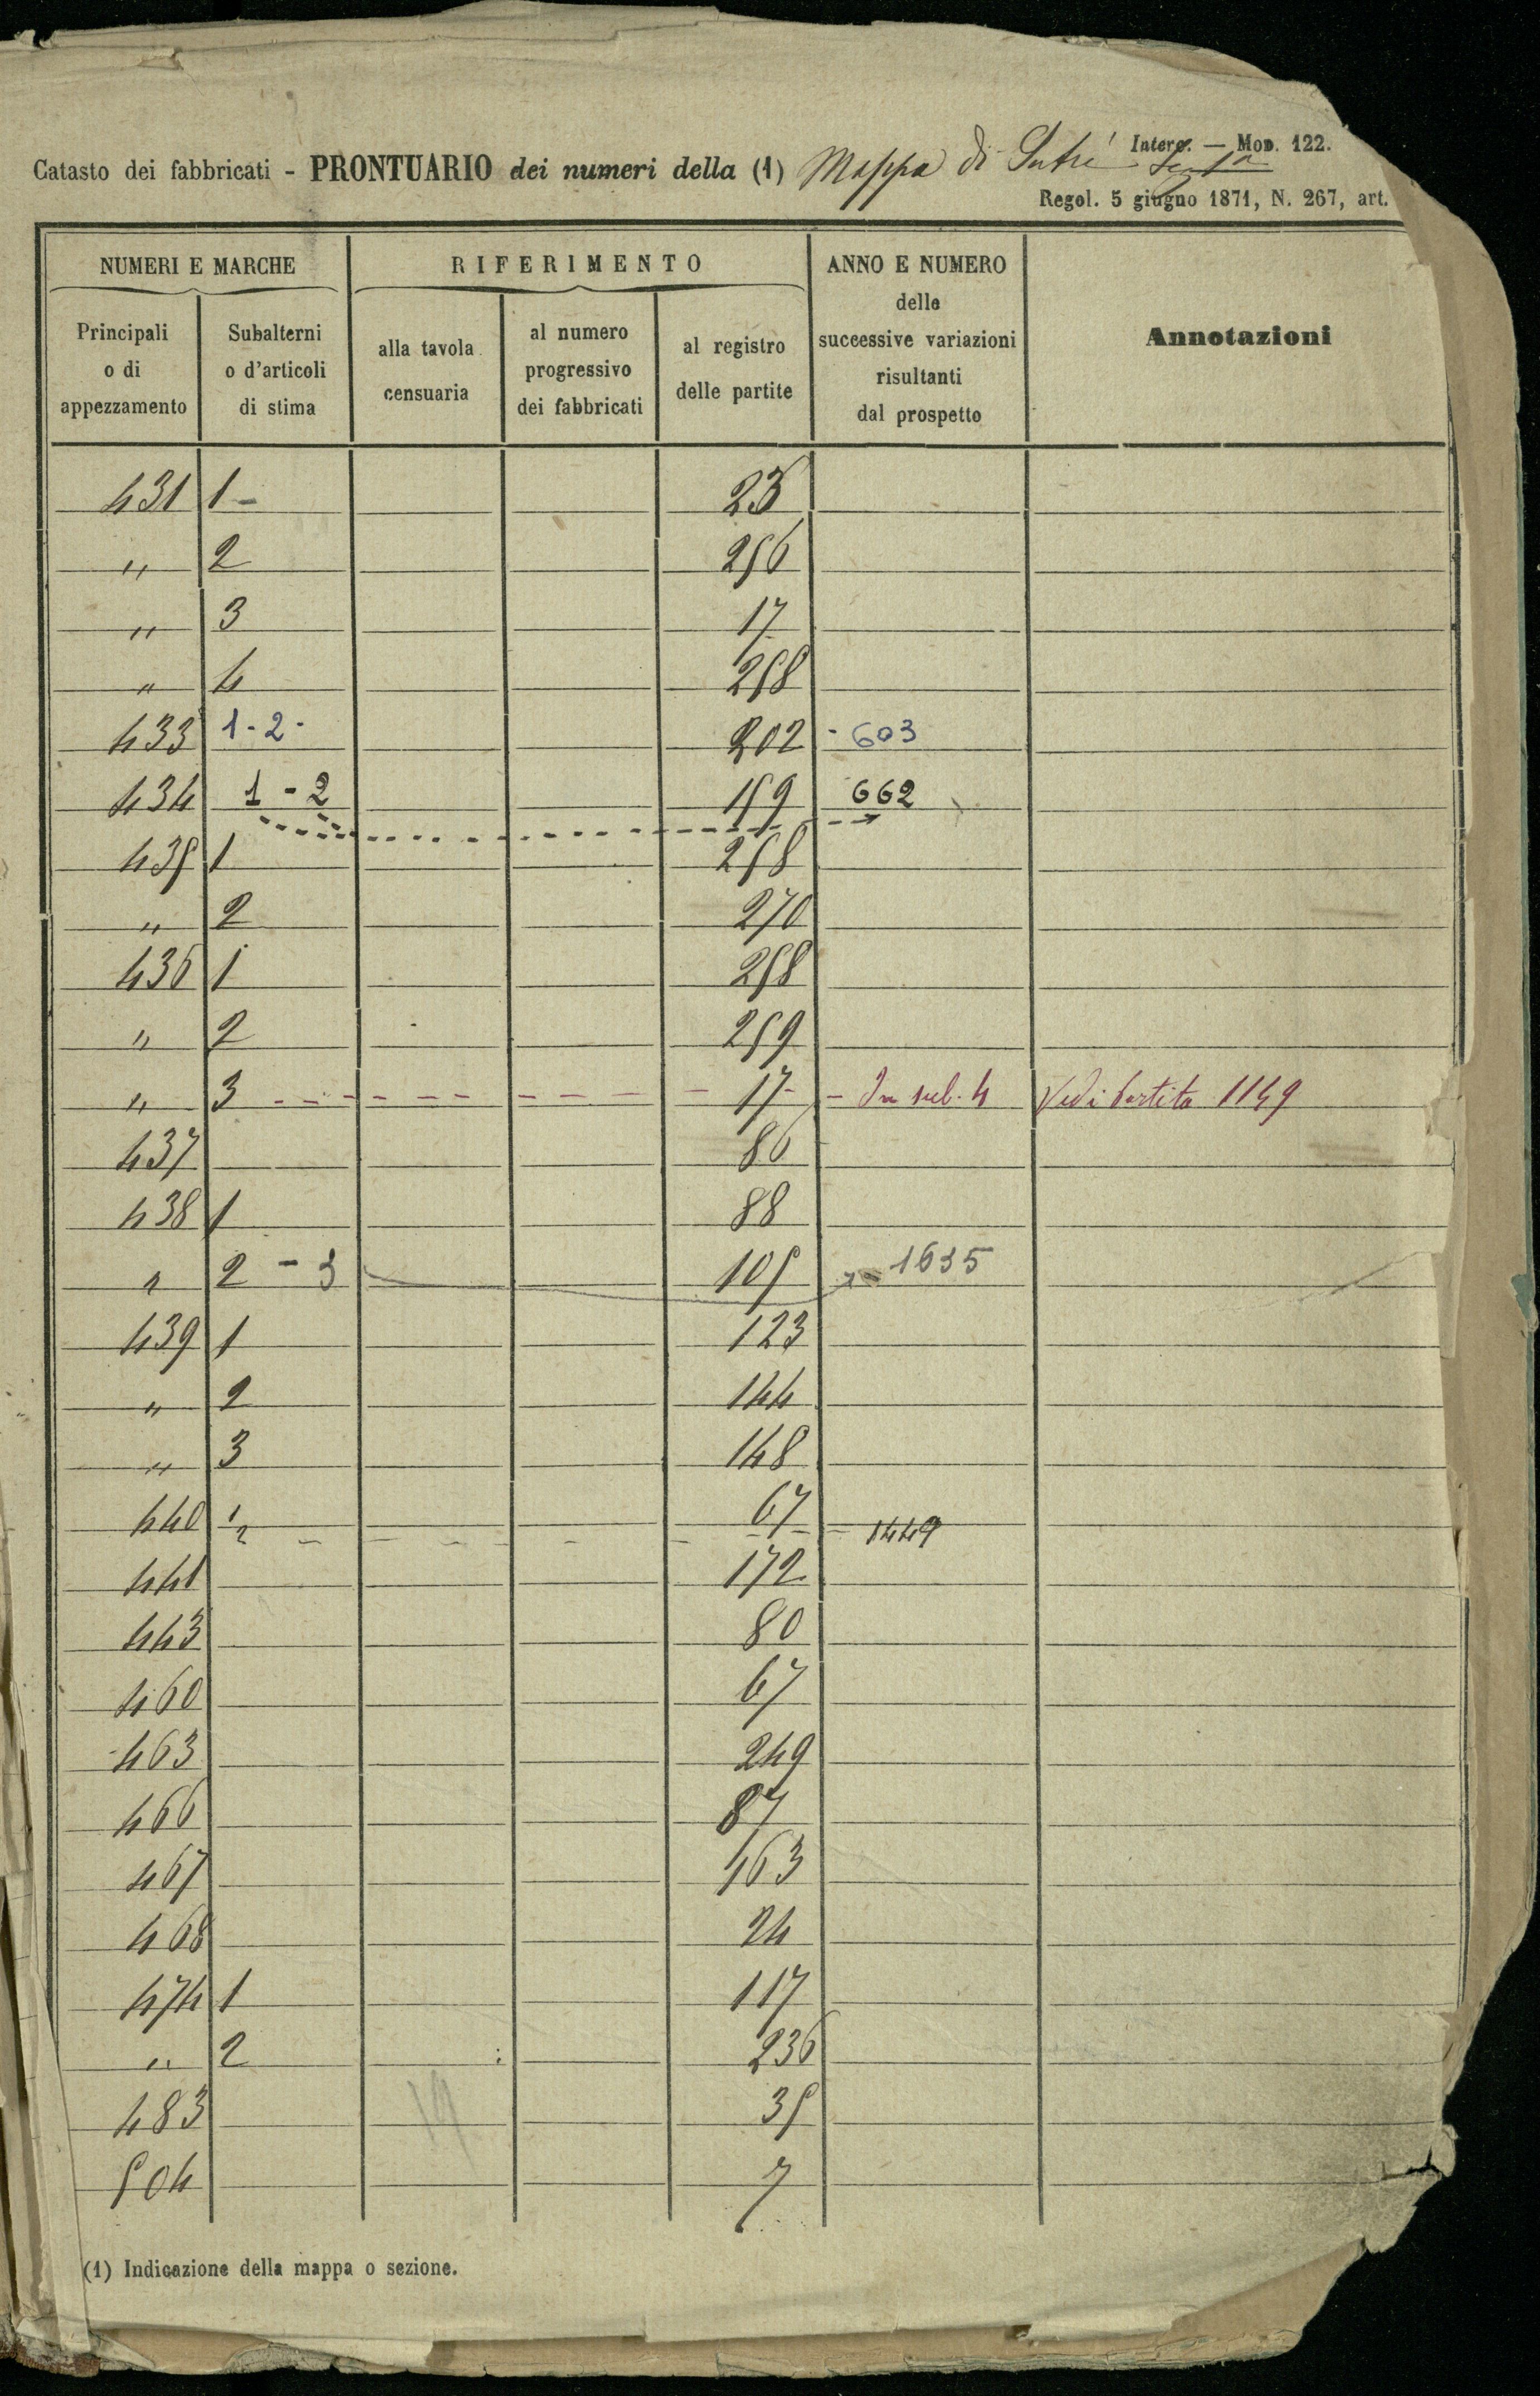 Interc. — Mod. 122.
Catasto dei fabbricati - PRONTUARIO dei numeri della (1) Mappa di Sutri
Regol. 5 giugno 1871, N. 267, art.
NUMERI E MARCHE RIFERIMENTO ANNO E NUMERO delle successive variazioni risultanti dal prospetto Annotazioni
Principali o di appezzamento Subalterni o d'articoli di stima alla tavola censuaria al numero progressivo dei fabbricati al registro delle partite
431 1 - 23
" 2 256
" 3 17
" 4 258
433 1 - 2 - 202 - 603
434 1 - 2 159 662
435 1 258
" 2 270
436 1 258
" 2 259
" 3 17 - In sub. 4 Vedi Partita 1149
437 86
438 1 88
" 2 - 3 105 1635
439 1 123
" 2 144
" 3 148
440 1/2 67 - 1449
441 172
443 80
460 67
463 249
466 87
467 163
468 24
474 1 117
" 2 236
483 35
504 7
(1) Indicazione della mappa o sezione.